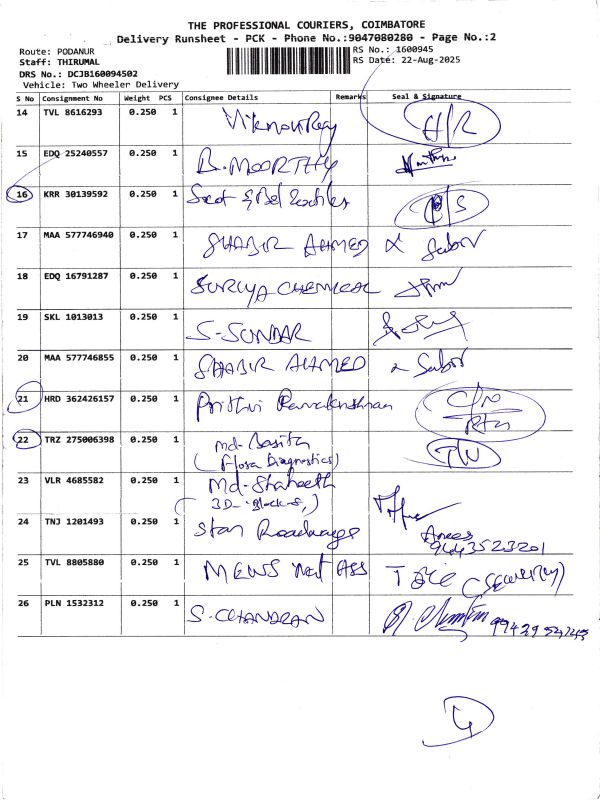 THE PROFESSIONAL COURIERS, COIMBATORE
Delivery Runsheet - PCK - Phone No.:9047080280 - Page No.:2
Route: PODANUR
RS No.: 1600945
Staff: THIRUMAL
RS Date: 22-Aug-2025
DRS No.: DCJB160094502
Vehicle: Two Wheeler Delivery
S No Consignment No Weight PCS Consignee Details Remarks Seal & Signature
14 TVL 8616293 0.250 1 H/R
15 EDQ 25240557 0.250 1 B. MOORTHY
16 KRR 30139592 0.250 1
17 MAA 577746940 0.250 1 SHABIR AHMED Sabir
18 EDQ 16791287 0.250 1 SURIYA CHEMICAL
19 SKL 1013013 0.250 1 S-SUNDAR
20 MAA 577746855 0.250 1 SHABIR AHMED Sabir
21 HRD 362426157 0.250 1 Prithvi Ramakrishnan
22 TRZ 275006398 0.250 1 Md-Basith
(Flora Diagnostics)
23 VLR 4685582 0.250 1 Md-Shaheeth
24 TNJ 1201493 0.250 1 Star Roadways Anees
9443523201
25 TVL 8805880 0.250 1 MEWS (Security)
26 PLN 1532312 0.250 1 S. CHANDRAN